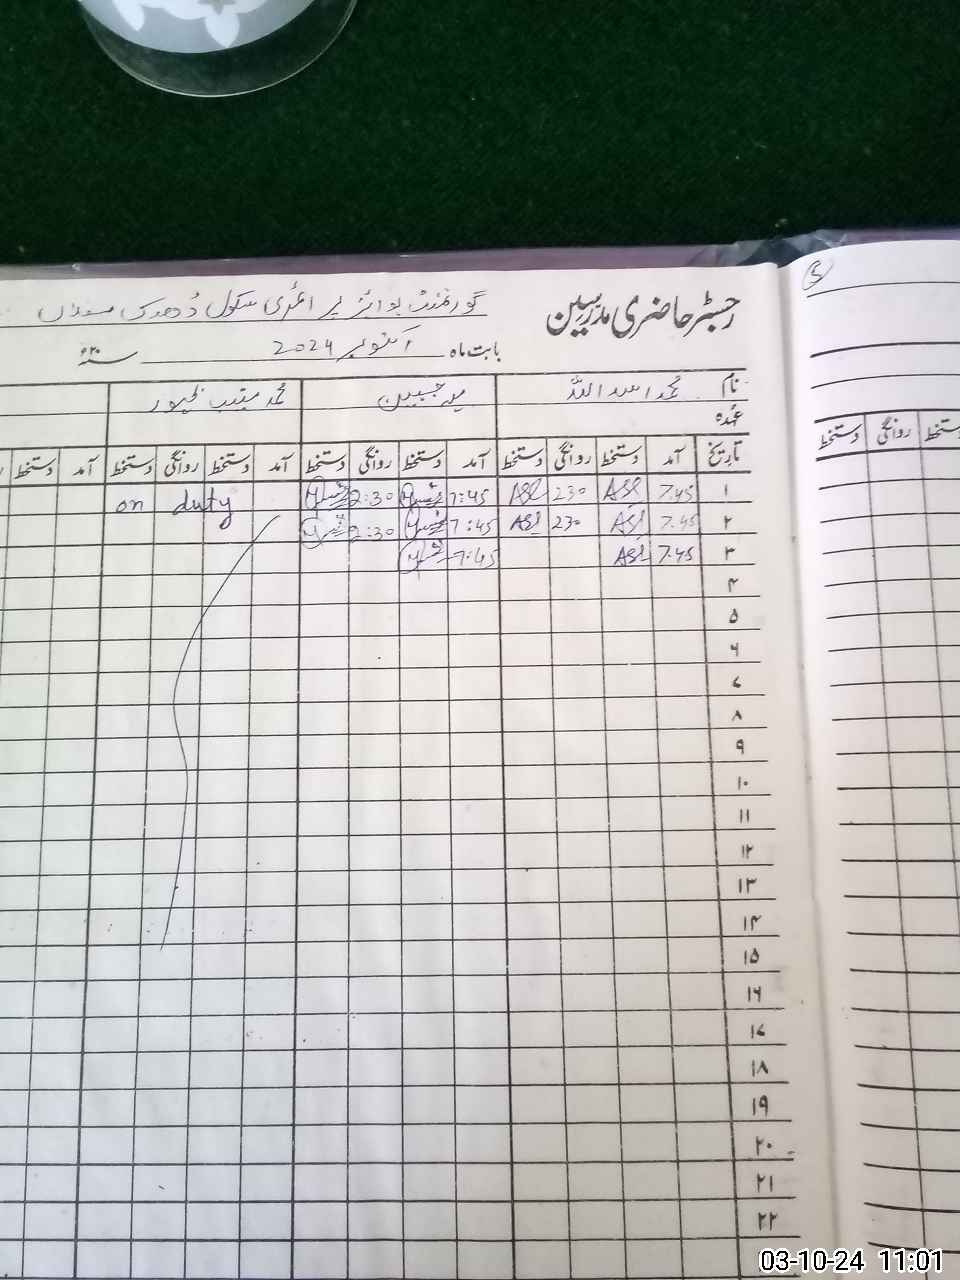 رجسٹر حاضری مدرسین گورنمنٹ بوائز پرائمری سکول ڈھوک
بابت ماہ اکتوبر 2024 ۲۰ء
نام محمد اسد اللہ مہ جبیں محمد
عہدہ
تاریخ آمد دستخط روانگی دستخط آمد دستخط روانگی دستخط آمد دستخط روانگی دستخط آمد دستخط
۱ 7.45 ASL 230 ASL 7:45 2:30 on duty
۲ 7.45 ASL 230 ASL 7:45 2:30
۳ 7.45 ASL 7:45
۴
۵
۶
۷
۸
۹
۱۰
۱۱
۱۲
۱۳
۱۴
۱۵
۱۶
۱۷
۱۸
۱۹
۲۰
۲۱
۲۲
5
دستخط روانگی دستخط
03-10-24 11:01